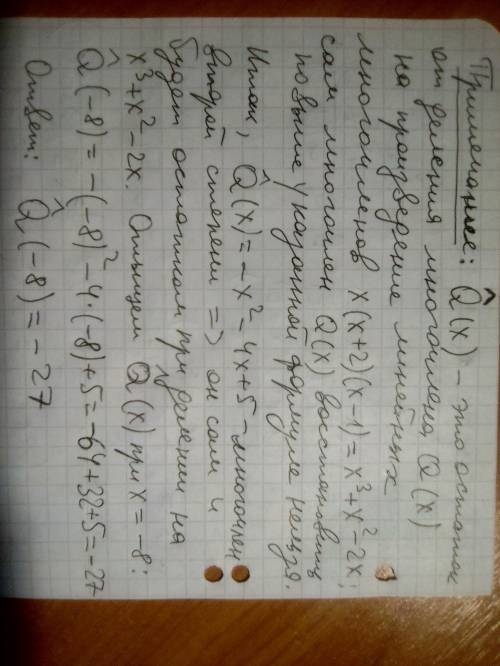 Примечание: Q̂(x) – это остаток
от деления многочлена Q(x)
на произведение линейных
многочленов x(x+2)(x-1)=x³+x²-2x;
сам многочлен Q(x) восстановить
по выше указанной формуле нельзя.
Итак, Q̂(x)=-x²-4x+5 – многочлен
второй степени => он сам и
будет остатком при делении на
x³+x²-2x. Отыщем Q̂(x) при x=-8:
Q̂(-8)=-(-8)²-4·(-8)+5=-64+32+5=-27
Ответ: Q̂(-8)=-27